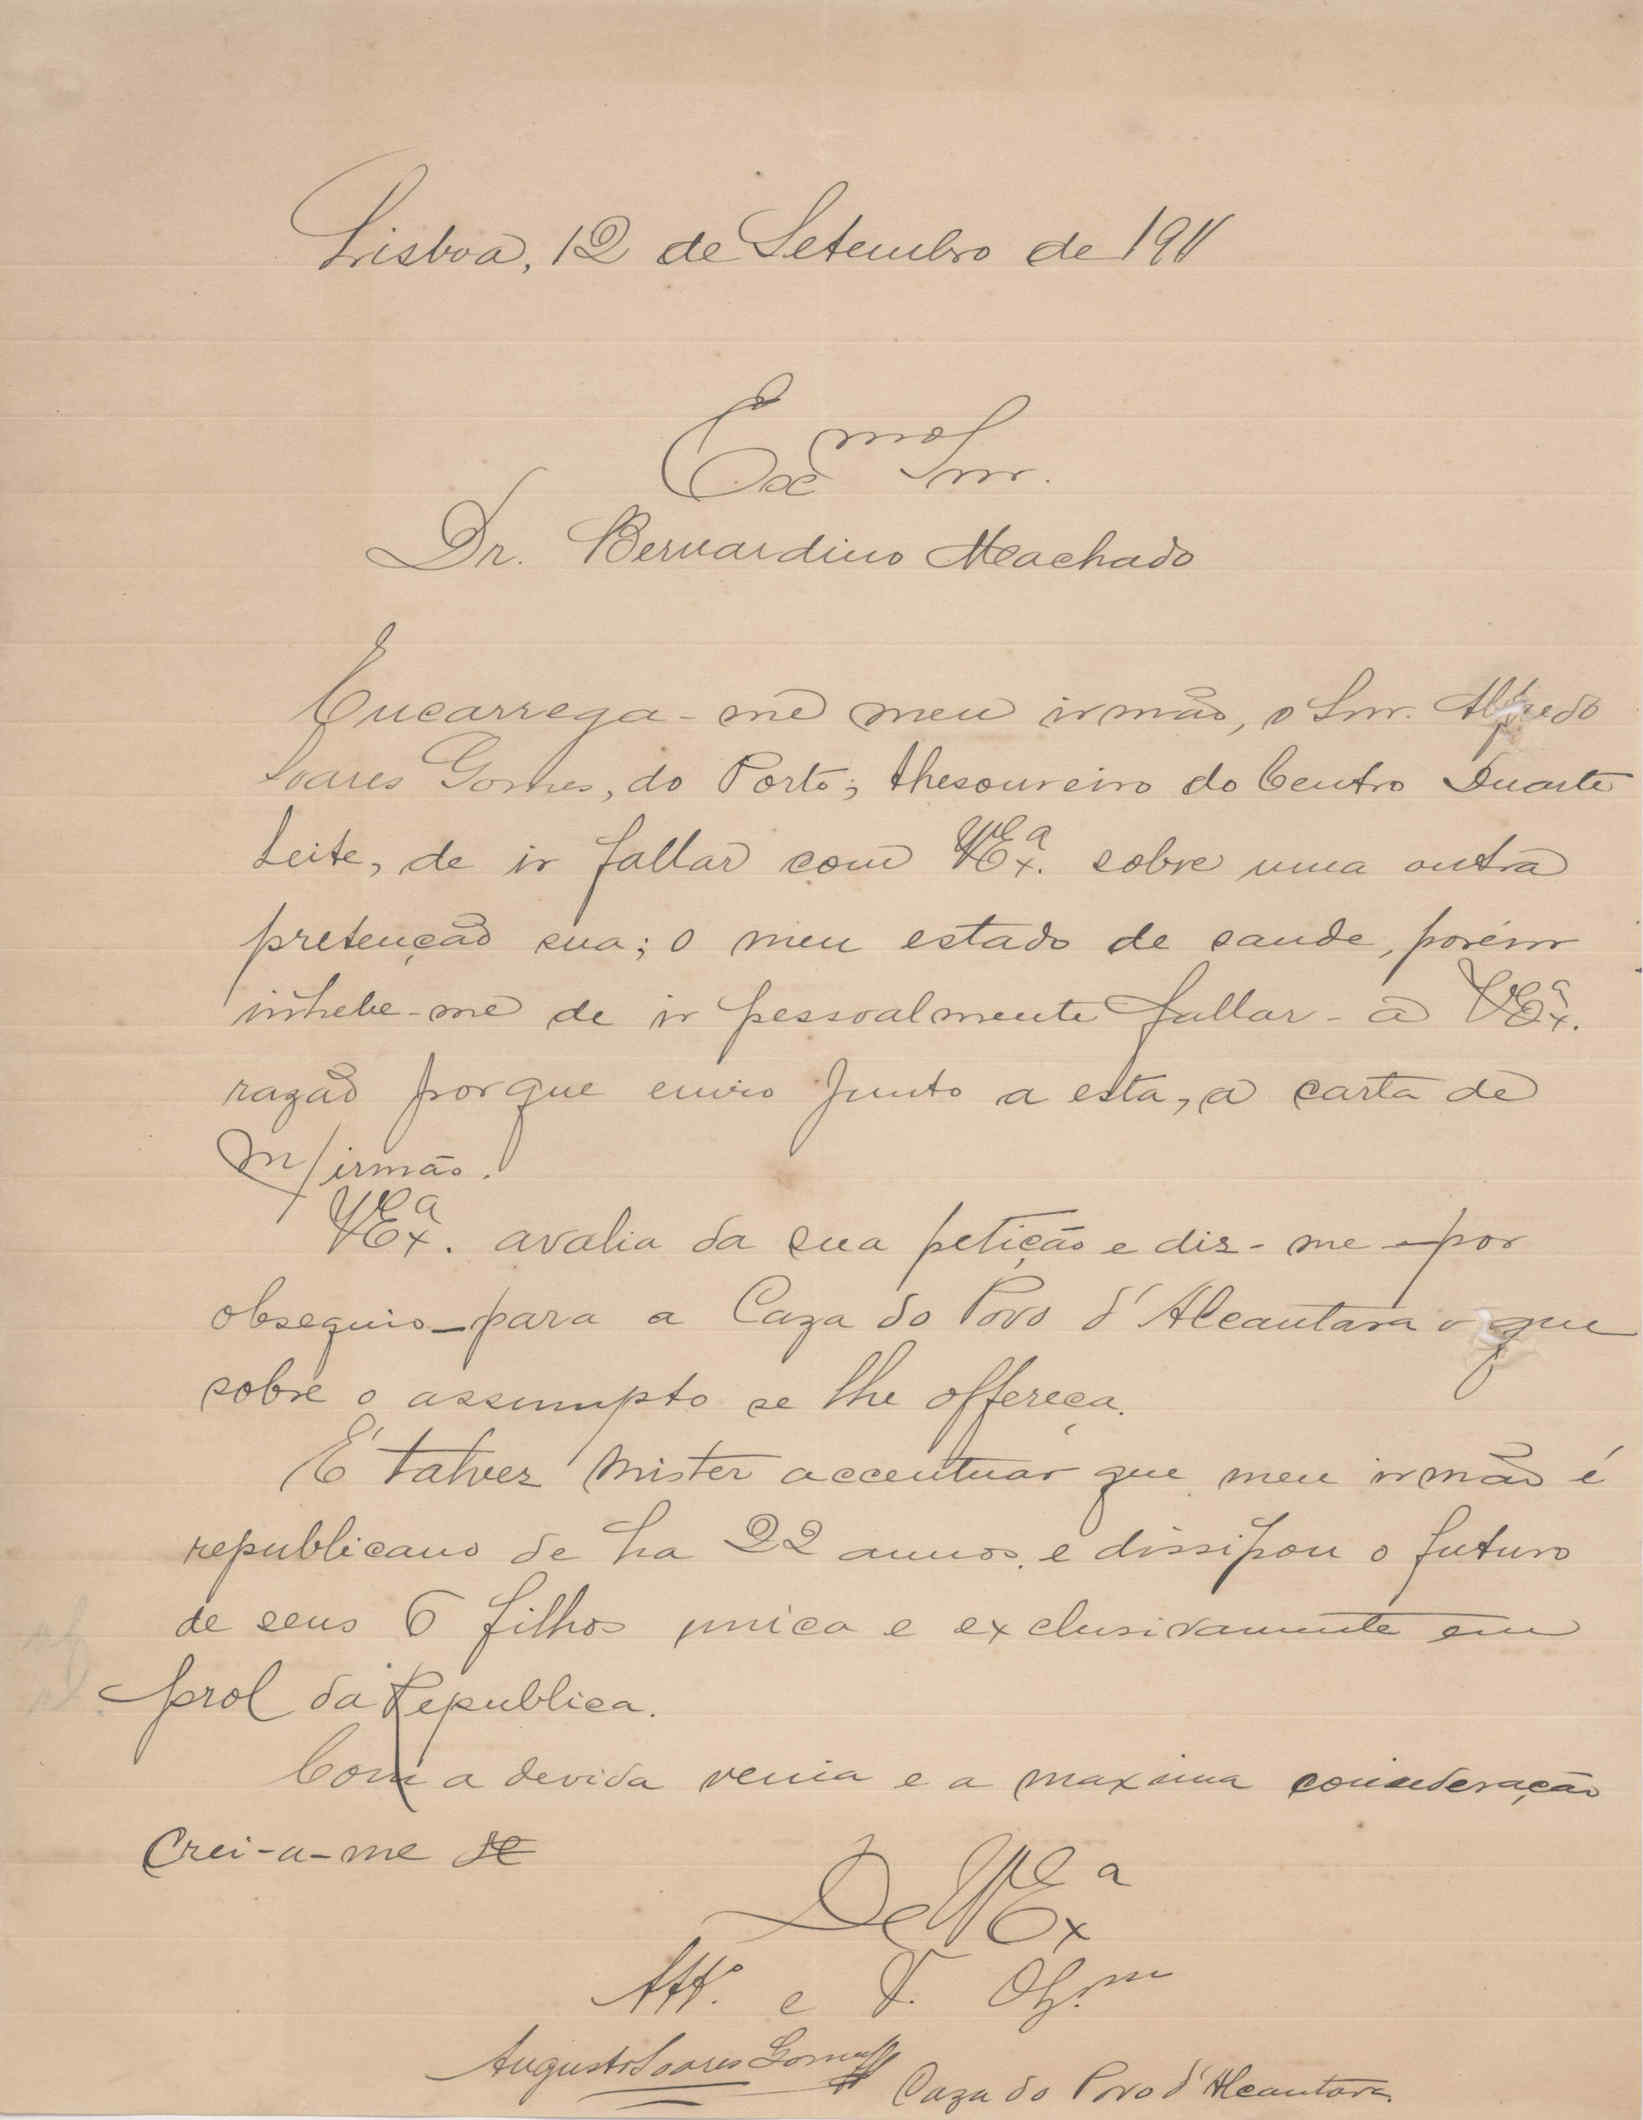 Lisboa, 12 de Setembro de 1911
Exmo Snr.
Dr. Bernardino Machado
Encarrega-me meu irmão, o Snr. Alfredo
Soares Gomes, do Porto; thesoureiro do Centro Duarte
Leite, de ir fallar com V.Exª. sobre uma outra
pretenção sua; o meu estado de saude, porém
inhebe-me de ir pessoalmente fallar-a V.Exª.
razão porque envio junto a esta, a carta de
m/irmão.
V.Exª. avalia da sua petição e dis-me-por
obsequio-para a Caza do Povo d'Alcantara o que
sobre o assumpto se lhe offereça.
É talvez mister accentuar que meu irmão é
republicano de ha 22 annos. e dissipou o futuro
de seus 6 filhos unica e exclusivamente em
prol da Republica.
Com a devida venia e a maxima consideração
Crei-a-me de
De V.Exª
Attº. e V. Obg.m
Augusto Soares Gomes
Caza do Povo d'Alcantara